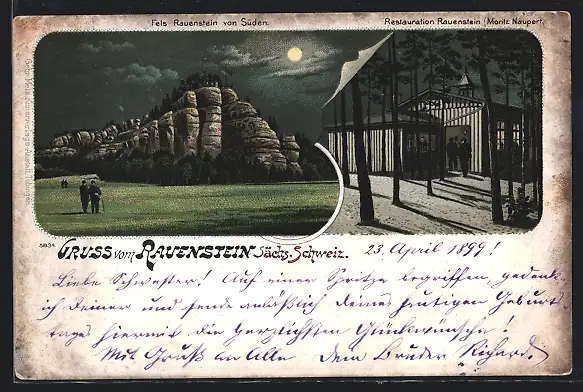 Fels Rauenstein von Süden.
Restauration Rauenstein (Moritz Naupert.
5834
GRUSS vom RAUENSTEIN Sächs. Schweiz.
23. April 1899!
Liebe Schwester! Auf einer Spritze begriffen, gedenk
ich Deiner und sende anläßlich Deines heutigen Geburts
tages hiermit die herzlichsten Glückwünsche!
Mit Gruß an Alle Dein Bruder Richard.